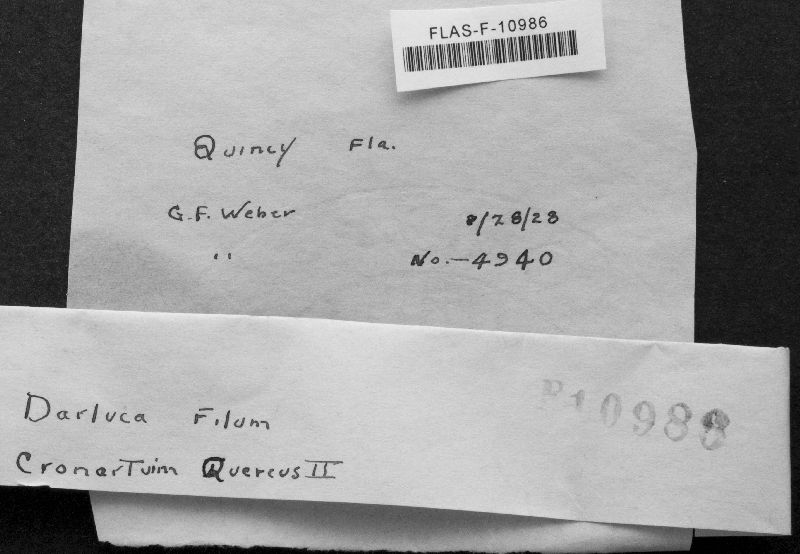 FLAS-F-10986
Quincy Fla.
G.F. Weber 8/28/28
" No.-4940
Darluca Filum
CronarTuim Quercus II